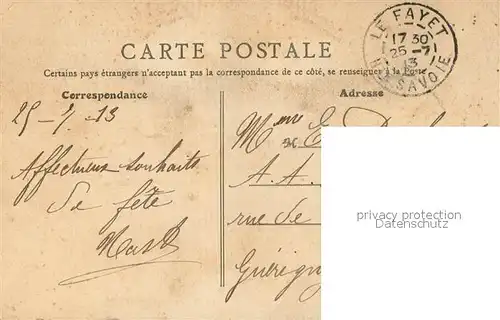 CARTE POSTALE
Certains pays étrangers n'acceptant pas la correspondance de ce côté, se renseigner à la Poste
Correspondance
Adresse
LE FAYET
17 30
25 -7
13
HTE SAVOIE
25-7-13
Affectueux souhaits
de fête
Mme E.
A. A.
rue de
Guérign
privacy protection
Datenschutz